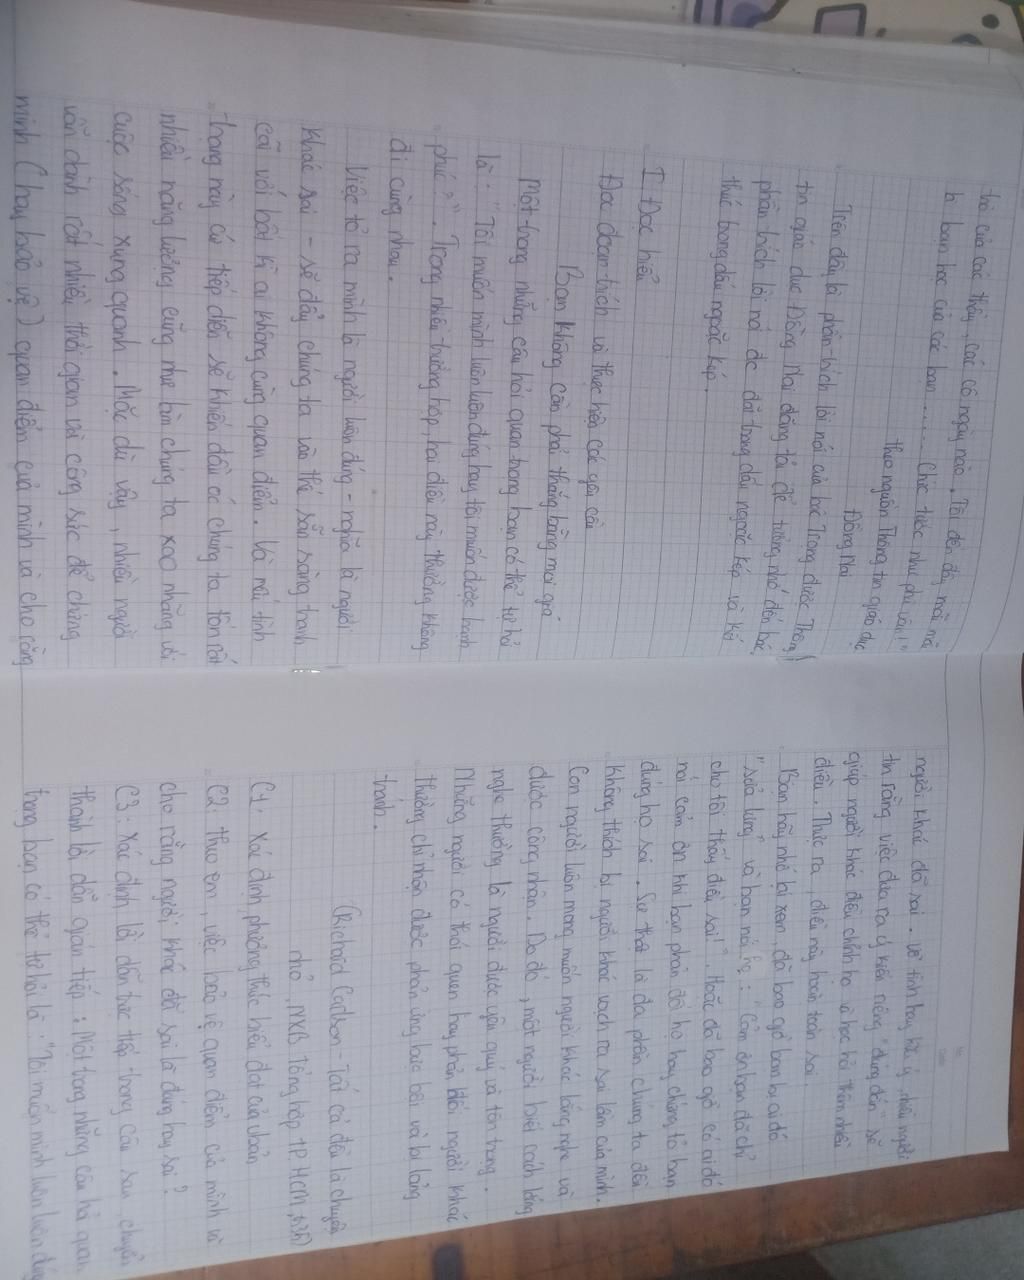 trò của các thầy, các cô ngày nào. Tôi đến đây mãi mãi
là bạn học của các bạn ....... Chức tước như phù vân!"
theo nguồn Thông tin giáo dục
Đồng Nai
Trên đây là phần trích lời nói của bác Trọng được Thông
tin giáo dục Đồng Nai đăng tả để tưởng nhớ đến bác,
phần trích lời nói đc đặt trong dấu ngoặc kép và kết
thúc bằng dấu ngoặc kép.
I Đọc hiểu
Đọc đoạn trích và thực hiện các yêu cầu
Bạn không cần phải thắng bằng mọi giá
Một trong những câu hỏi quan trọng bạn có thể tự hỏi
là: "Tôi muốn mình luôn luôn đúng hay tôi muốn được hạnh
phúc?". Trong nhiều trường hợp, hai điều này thường không
đi cùng nhau.
Việc tỏ ra mình là người luôn đúng - nghĩa là người
khác sai - sẽ đẩy chúng ta vào thế sẵn sàng tranh
cãi với bất kì ai không cùng quan điểm. Và nếu tình
trạng này cứ tiếp diễn sẽ khiến đầu óc chúng ta tốn rất
nhiều năng lượng cũng như làm chúng ta xao nhãng với
cuộc sống xung quanh. Mặc dù vậy, nhiều người
vẫn dành rất nhiều thời gian và công sức để chứng
minh (hay bảo vệ) quan điểm của mình và cho rằng
người khác đã sai. Vô tình hay hữu ý, nhiều người
tin rằng việc đưa ra ý kiến riêng "đúng đắn" sẽ
giúp người khác điều chỉnh họ và học hỏi thêm nhiều
điều. Thực ra, điều này hoàn toàn sai.
Bạn hãy nhớ lại xem, đã bao giờ bạn bị ai đó
"sửa lưng" và bạn nói họ: "Cảm ơn bạn đã chỉ
cho tôi thấy điều sai". Hoặc đã bao giờ có ai đó
nói cảm ơn khi bạn phản đối họ hay chứng tỏ bạn
đúng họ sai. Sự thật là đa phần chúng ta đều
không thích bị người khác vạch ra sai lầm của mình.
Con người luôn mong muốn người khác lắng nghe và
được công nhận. Do đó, một người biết cách lắng
nghe thường là người được yêu quý và tôn trọng.
Những người có thói quen hay phản đối người khác
thường chỉ nhận được phản ứng bực bội và bị lảng
tránh.
(Richard Carlson - Tất cả đều là chuyện
nhỏ, NXB Tổng hợp TP HCM,
C1: Xác định phương thức biểu đạt của vbản
C2: theo em, việc bảo vệ quan điểm của mình và
cho rằng người khác đã sai là đúng hay sai?
C3: Xác định lời dẫn trực tiếp trong câu sau, chuyển
thành lời dẫn gián tiếp: Một trong những câu hỏi quan
trọng bạn có thể tự hỏi là: "Tôi muốn mình luôn luôn đúng